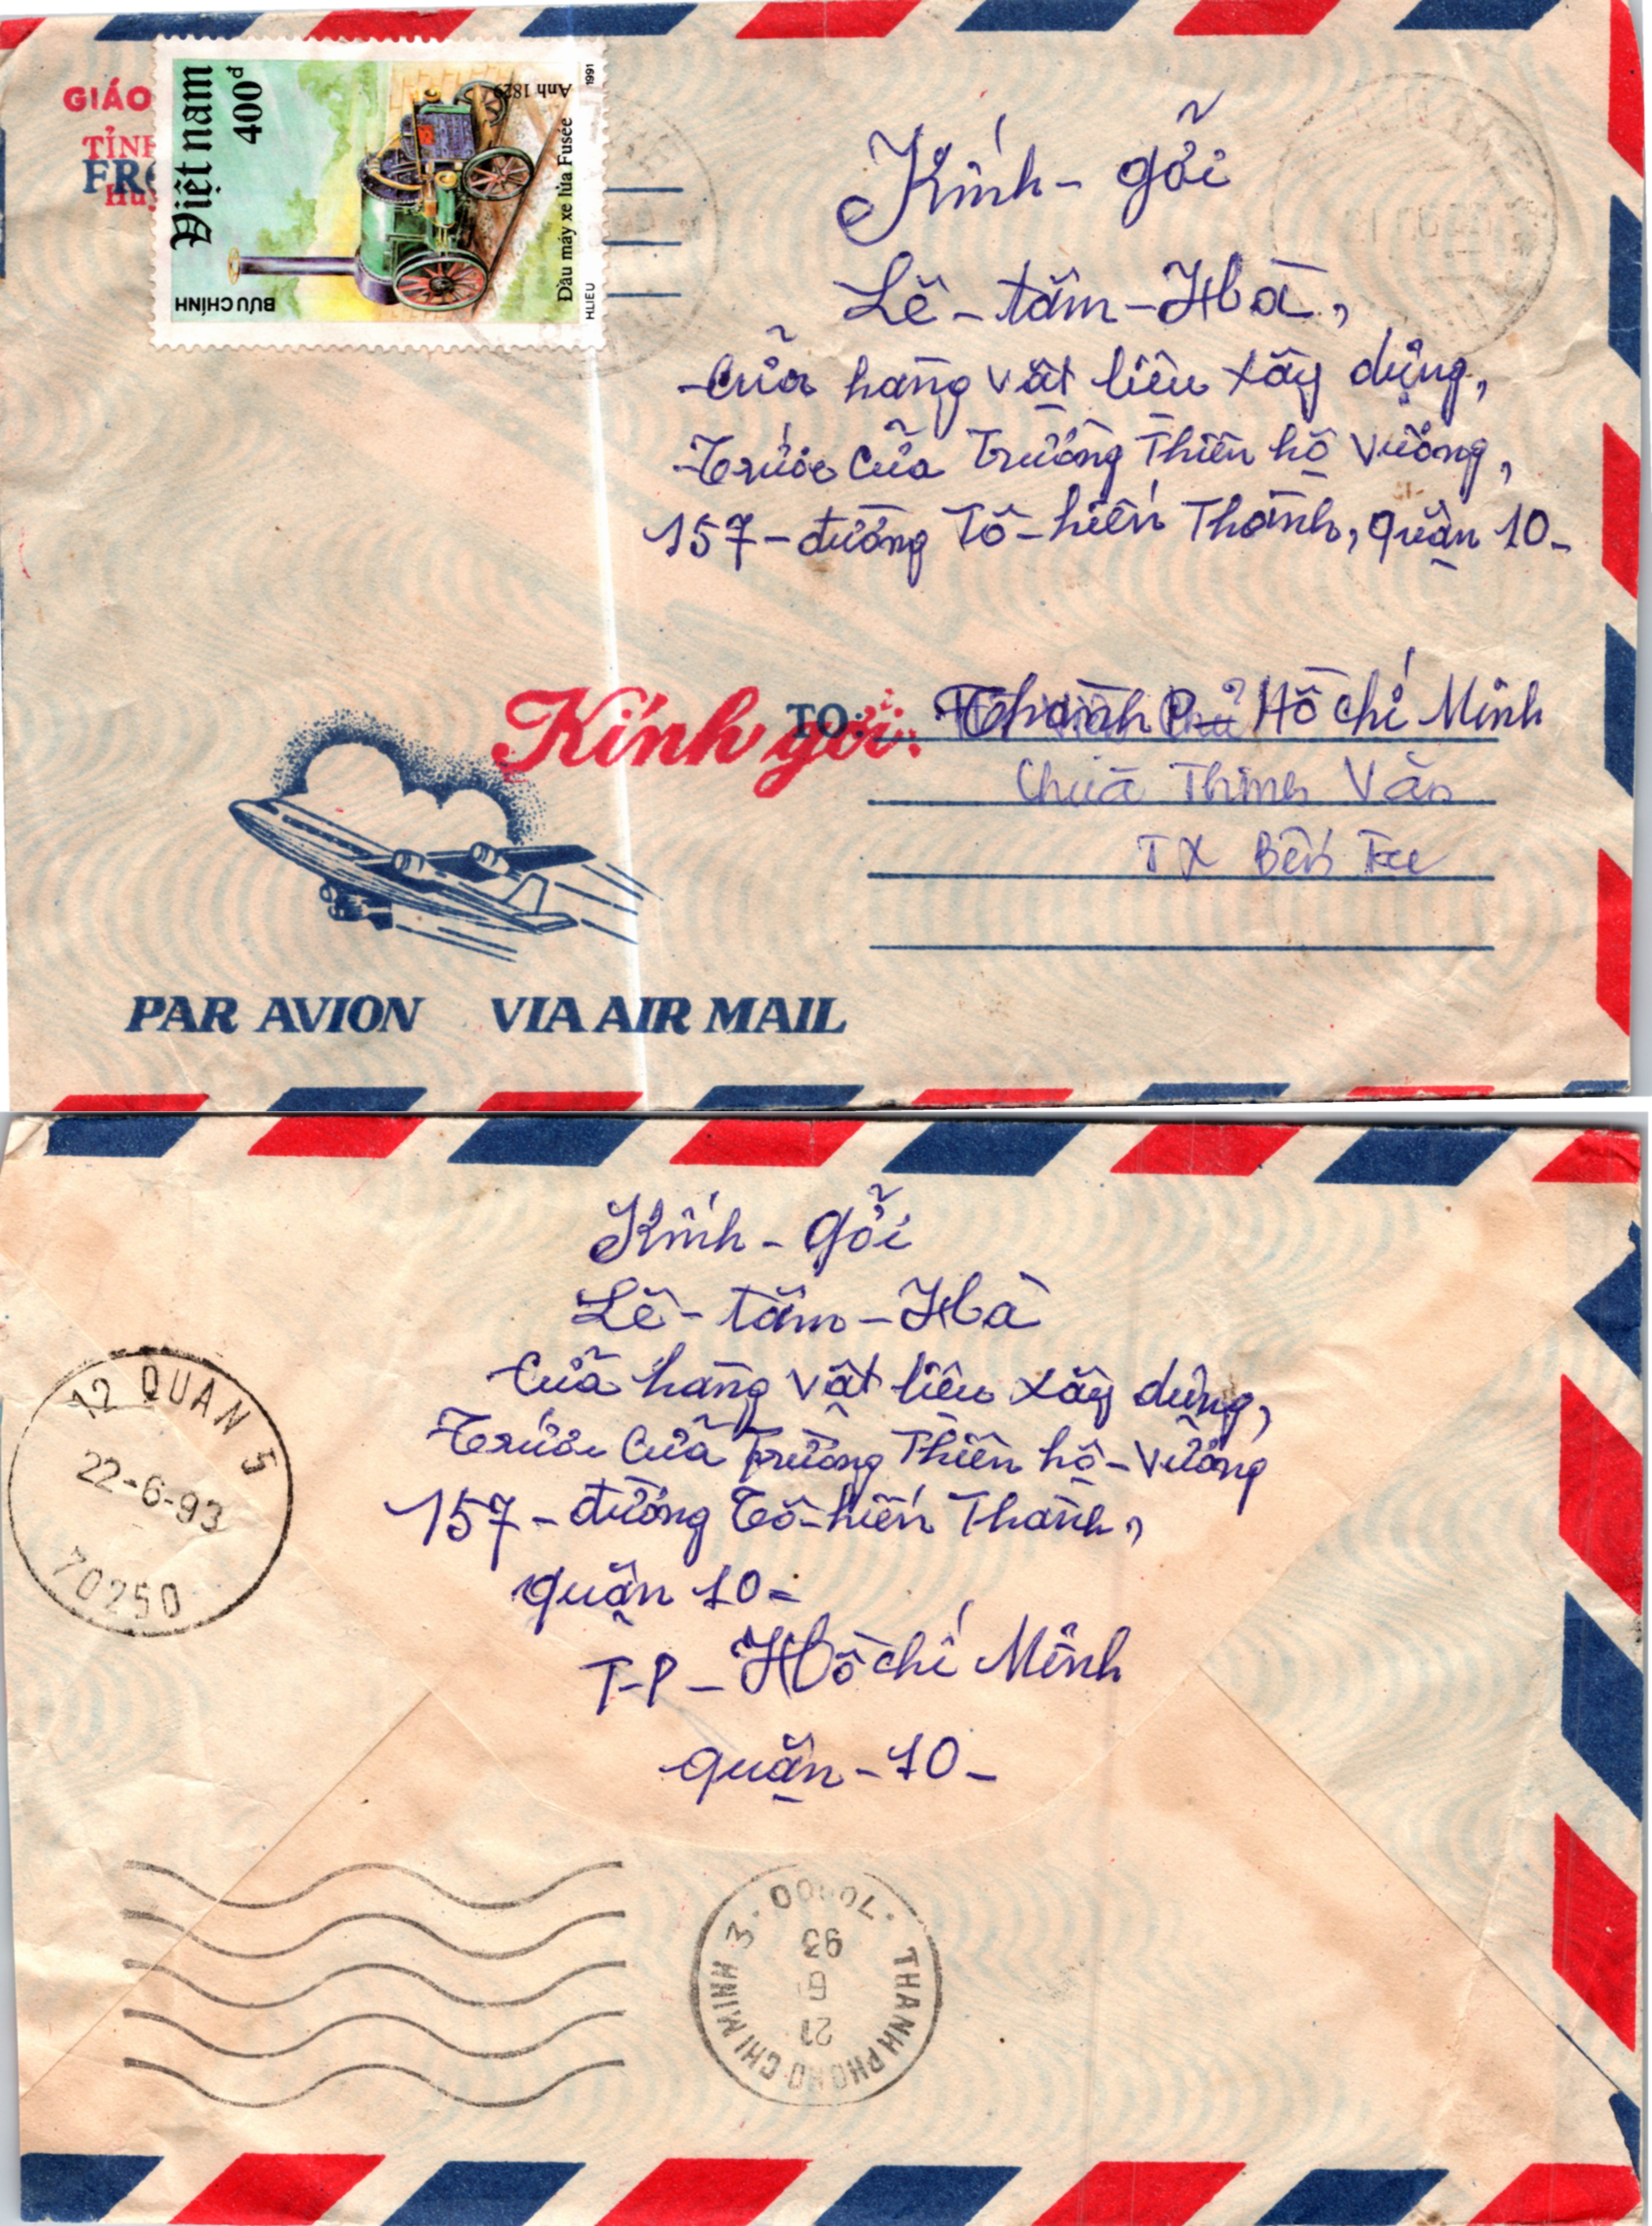 GIÁO
TỈNH
FRO
Huy
Việt nam
400đ
BƯU CHÍNH
Đầu máy xe lửa Fusée
Anh 1829
1991
H.LIEU
Kính - gởi
Lê - tâm - Hà,
Cửa hàng vật liệu xây dựng,
Trước cửa Trường Thiên hộ Vương,
157 - đường Tô - hiến Thành, quận 10 -
Kính gởi:
TO:
Thành Phố Hồ chí Minh
Chùa Thinh Văn
TX Bến Tre
PAR AVION VIA AIR MAIL
Kính - gởi
Lê - tâm - Hà
Cửa hàng vật liệu xây dựng,
Trước cửa Trường Thiên hộ - Vương
157 - đường Tô - hiến Thành,
quận 10 -
T-P - Hồ chí Minh
quận - 10 -
12 QUAN 5
22-6-93
70250
THANH PHO HO CHI MINH 3
93
6